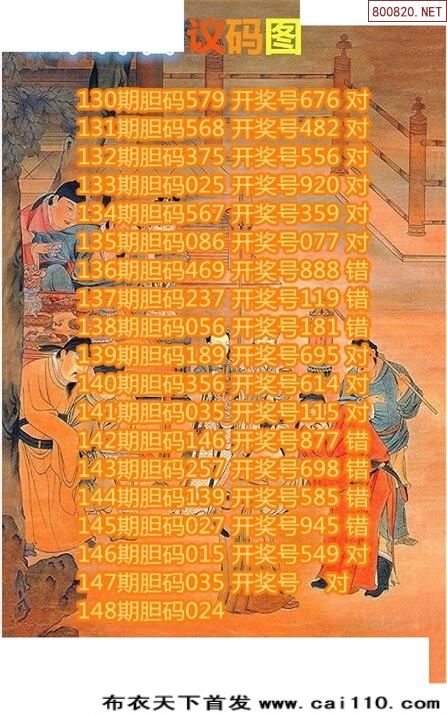 800820.NET
议码图
130期胆码579 开奖号676 对
131期胆码568 开奖号482 对
132期胆码375 开奖号556 对
133期胆码025 开奖号920 对
134期胆码567 开奖号359 对
135期胆码086 开奖号077 对
136期胆码469 开奖号888 错
137期胆码237 开奖号119 错
138期胆码056 开奖号181 错
139期胆码189 开奖号695 对
140期胆码356 开奖号614 对
141期胆码035 开奖号115 对
142期胆码146 开奖号877 错
143期胆码257 开奖号698 错
144期胆码139 开奖号585 错
145期胆码027 开奖号945 错
146期胆码015 开奖号549 对
147期胆码035 开奖号 对
148期胆码024
布衣天下首发 www.cai110.com